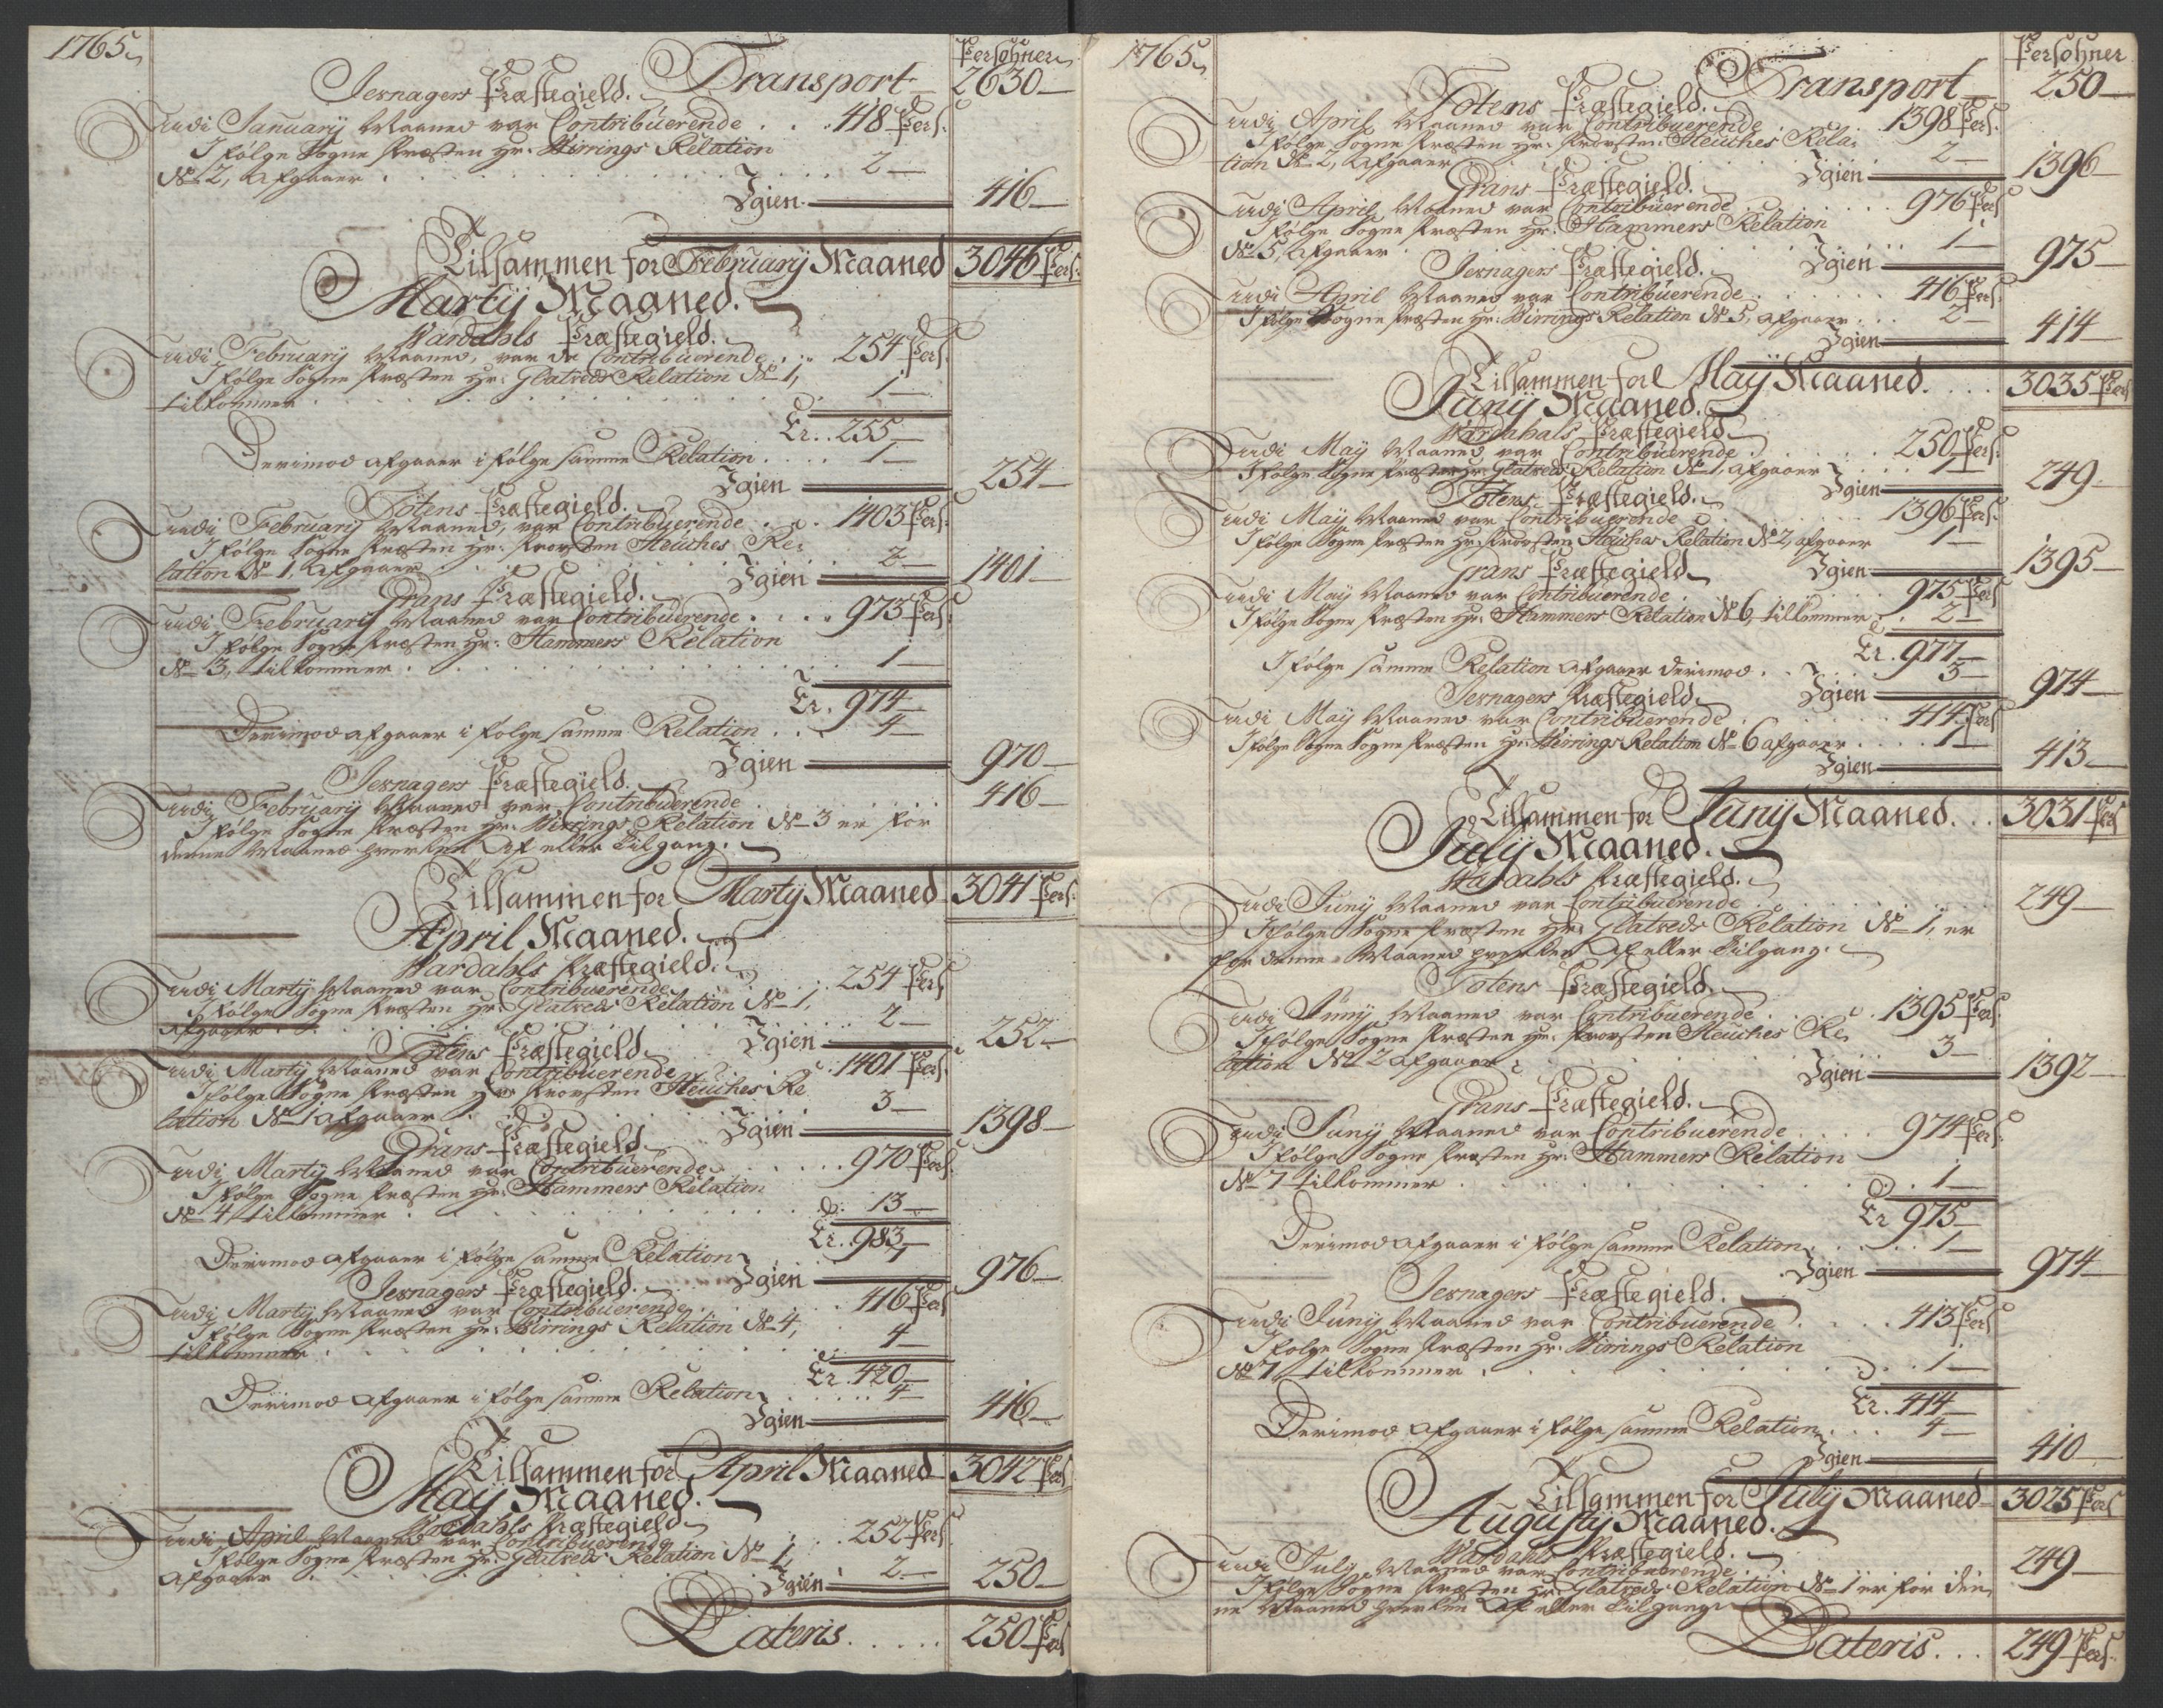 1765
Persohner
Transport 2630
Jevnagers Præstegield.
Udi January Maaned var Contribuerende . . . 418 Pers.
Ifølge Sogne Præsten Hr. Wirrings Relation
No 2, Afgaaer . . . 2
Igien 416
Tilsammen for February Maaned 3046 Pers.
Marty Maaned.
Wardahls Præstegield.
Udi February Maaned, var de Contribuerende . . 254 Pers.
Ifølge Sogne Præsten Hr. Glatveds Relation No 1,
tilkommer . . . 1
Er . . 255
Derimod afgaaer i følge samme Relation . . . 1
Igien 254
Totens Præstegield.
Udi February Maaned, var Contribuerende . . . 1403 Pers.
Ifølge Sogne Præsten Hr. Provsten Heuches Re
lation No 1, Afgaaer . . . 2
Igien 1401
Grans Præstegield.
Udi February Maaned var Contribuerende . . . 973 Pers.
Ifølge Sogne Præsten Hr. Hammers Relation
No 3, tilkommer . . . 1
Er . 974
Derimod afgaaer i følge samme Relation . . . 4
Igien 970
Jevnagers Præstegield.
Udi February Maaned var Contribuerende . . . 416
Ifølge Sogne Præsten Hr. Wirrings Relation No 3 er for
denne Maaned hverken Af eller Tilgang.
Tilsammen for Marty Maaned 3041 Pers.
April Maaned.
Wardahls Præstegield.
Udi Marty Maaned var Contribuerende . . . 254 Pers
Ifølge Sogne Præsten Hr. Glatveds Relation No 1,
Afgaaer . . . 2
Igien 252
Totens Præstegield
Udi Marty Maaned var Contribuerende . . . 1401 Pers.
Ifølge Sogne Præsten Hr Provsten Heuches Re
lation No 1 Afgaaer . . . 3
Igien 1398
Grans Præstegield
Udi Marty Maaned var Contribuerende . . . 970 Pers.
Ifølge Sogne Præsten Hr. Hammers Relation
No 4, tilkommer . . . 13
Er . 983
Derimod afgaaer i følge samme Relation . . . 7
Igien 976
Jevnagers Præstegield.
Udi Marty Maaned var Contribuerende . . . 416 Pers
Ifølge Sogne Præsten Hr. Wirrings Relation No 4,
tilkommer . . . 4
Er . 420
Derimod afgaaer i følge samme Relation . . . 4
Igien 416
Tilsammen for April Maaned 3042 Pers
May Maaned.
Wardahls Præstegield
Udi April Maaned var Contribuerende . . . 252 Pers.
Ifølge Sogne Præsten Hr. Glatveds Relation No 1,
Afgaaer . . . 2
Igien 250
Lateris . . . . . 250 Pers
1765
Persohner
Transport 250
Totens Præstegield.
Udi April Maaned var Contribuerende . . . 1398 Pers.
Ifølge Sogne Præsten Hr. Provsten Heuches Rela
tion No 2, Afgaaer . . . 2
Igien 1396
Grans Præstegield.
Udi April Maaned var Contribuerende . . . 976 Pers
Ifølge Sogne Præsten Hr. Hammers Relation
No 5, Afgaaer . . . 1
Igien 975
Jevnagers Præstegield.
Udi April Maaned var Contribuerende . . . 416 Pers.
Ifølge Sogne Præsten Hr. Wirrings Relation No 5, afgaaer . . . 2
Igien 414
Tilsammen for May Maaned . . . . 3035 Pers
Juny Maaned.
Wardahals Præstegield
Udi May Maaned var Contribuerende . . . 250 Pers.
Ifølge Sogne Præsten Hr. Glatveds Relation No 1, afgaaer . . . 1
Igien 249
Totens Præstegield.
Udi May Maaned var Contribuerende . . . 1396 Pers.
Ifølge Sogne Præsten Hr. Provsten Heuches Relation No 2, afgaaer 1
Igien 1395
Grans Præstegield
Udi May Maaned var Contribuerende . . . 975 Pers
Ifølge Sogne Præsten Hr. Hammers Relation No 6, tilkommer . . . 2
Er . 977
Ifølge samme Relation afgaaer derimod . . . 3
Igien 974
Jevnagers Præstegield
Udi May Maaned var Contribuerende . . . 414 Pers
Ifølge Sogne Sogne Præsten Hr. Wirrings Relation No 6 afgaaer . . . 1
Igien 413
Tilsammen for Juny Maaned. . . 3031 Pers
July Maaned.
Wardahls Præstegield.
Udi Juny Maaned var Contribuerende . . . 249
Ifølge Sogne Præsten Hr. Glatveds Relation No 1, er
for denne Maaned hverken Af eller Tilgang.
Totens Præstegield
Udi Juny Maaned var Contribuerende . . . 1395 Pers.
Ifølge Sogne Præsten Hr. Provsten Heuches Re
lation No 2 afgaaer . . . 3
Igien 1392
Grans Præstegield.
Udi Juny Maaned var Contribuerende . . . 974 Pers.
Ifølge Sogne Præsten Hr. Hammers Relation
No 7 tilkommer . . . 1
Er 975
Derimod afgaaer i følge samme Relation . . . 1
Igien 974
Jevnagers Præstegield.
Udi Juny Maaned var Contribuerende . . . 413 Pers
Ifølge Sogne Præsten Hr. Wirrings Relation
No 7, tilkommer . . . 1
Er. 414
Derimod afgaaer i følge samme Relation . . . 4
Igien 410
Tilsammen for July Maaned 3025 Pers
Augusty Maaned.
Wardahls Præstegield.
Udi July Maaned var Contribuerende . . . 249
Ifølge Sogne Præsten Hr. Glatveds Relation No 1 er for den
ne Maaned hverken Af eller Tilgang
Lateris . . . 249 Pers.